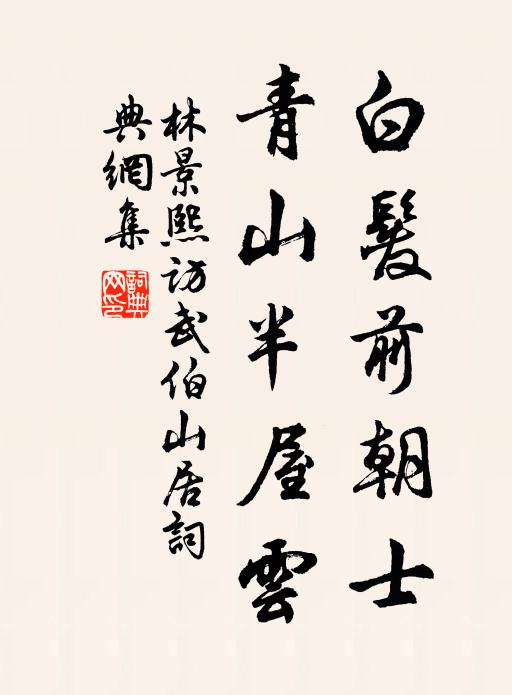 白髮前朝士
青山半屋雲
林景熙訪武伯山居詞
典網集
詞典
网印